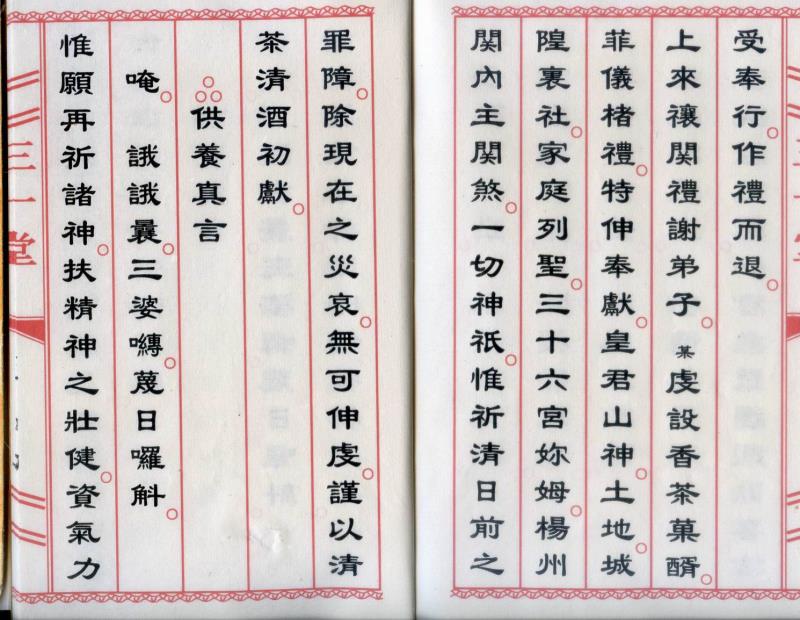 受奉行作禮而退
上來禳関禮謝弟子某虔設香茶菓醑
菲儀楮禮特伸奉獻皇君山神土地城
隍裏社家庭列聖三十六宮妳姆楊州
関內主関煞一切神祇惟祈清日前之
罪障除現在之災哀無可伸虔謹以清
茶清酒初獻
供養真言
唵誐誐曩三婆嚩蔑日囉斛
惟願再祈諸神扶精神之壯健資氣力
三一堂